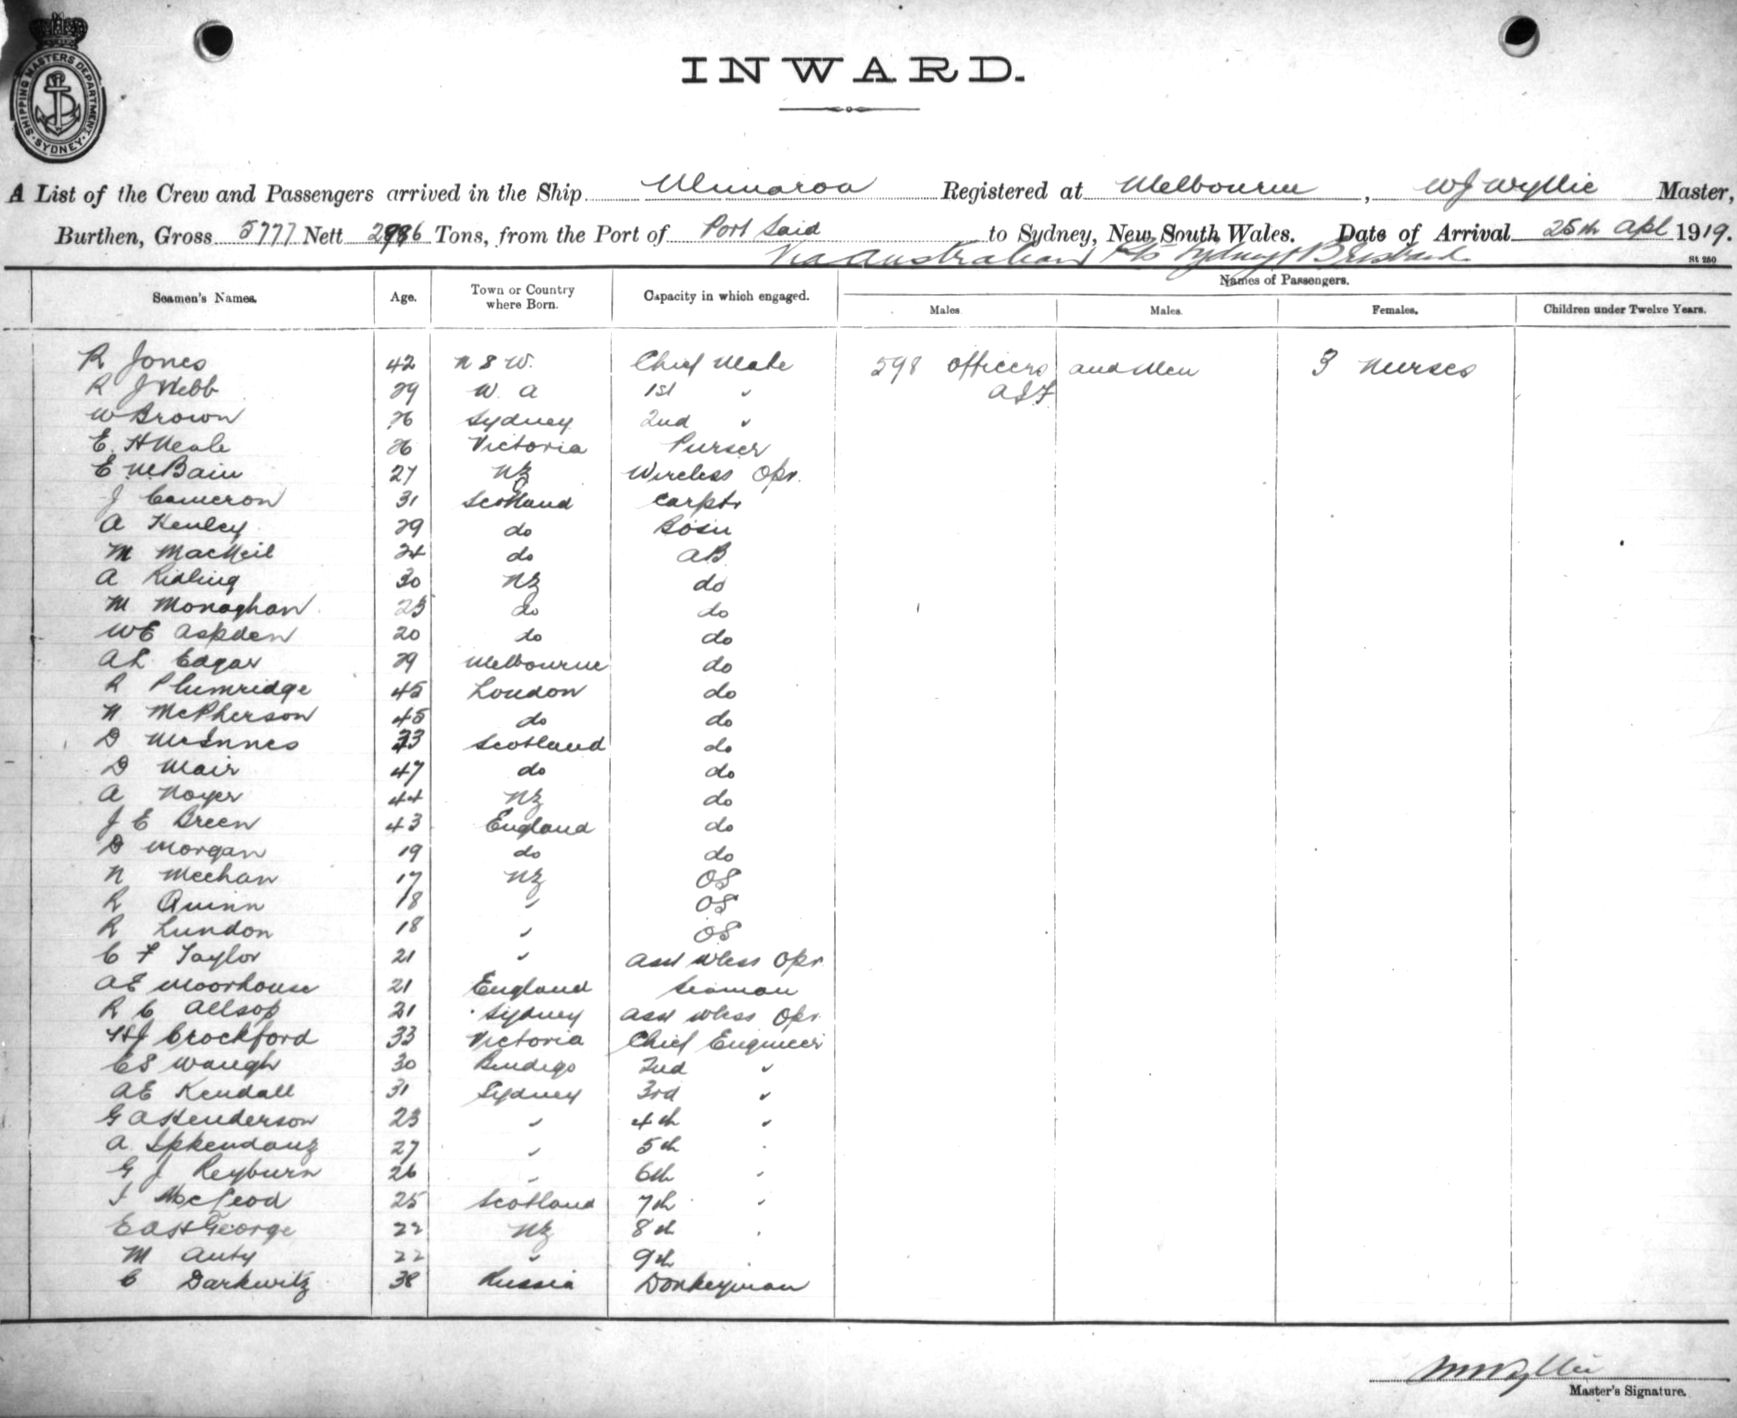 SHIPPING MASTERS DEPARTMENT SYDNEY
INWARD.
A List of the Crew and Passengers arrived in the Ship Ulimaroa Registered at Melbourne, W J Wyllie Master,
Burthen, Gross 5777 Nett Tons, from the Port of Port Said to Sydney, New South Wales. Date of Arrival 25th Apl 1919.
Via Australian Pts Sydney Brisbane
St 280
Seamen's Names. Age. Town or Country where Born. Capacity in which engaged. Names of Passengers.
Males Males. Females. Children under Twelve Years.
R Jones 42 N S W. Chief Mate 598 Officers and Men 3 Nurses
R J Webb 29 W. A 1st " A I F
W Brown 26 Sydney 2nd "
E. H Neale 26 Victoria Purser
E McBain 27 NZ Wireless Opr.
J Cameron 31 Scotland Carptr
A Kenley 29 do Bosn
M MacNeil 24 do AB
A Ridling 30 NZ do
M Monaghan 25 do do
WE Aspden 20 do do
A L Edgar 29 Melbourne do
R Plumridge 45 London do
N McPherson 45 do do
D McInnes 33 Scotland do
D Mair 47 do do
A Noyer 44 NZ do
J E Breen 43 England do
D Morgan 19 do do
N Meehan 17 NZ OS
R Quinn 18 " OS
R Lundon 18 " OS
C F Taylor 21 " Asst Wless Opr
AE Moorhouse 21 England Seaman
R C Allsop 21 Sydney Asst Wless Opr
HJ Crockford 33 Victoria Chief Engineer
CS Waugh 30 Bendigo 2nd "
AE Kendall 31 Sydney 3rd "
G A Henderson 23 " 4th "
A. 27 " 5th "
G J Reyburn 26 " 6th "
J McLeod 25 Scotland 7th "
E A St George 22 NZ 8th "
M Auty 22 " 9th
C Darkwitz 38 Russia Donkeyman
W J Wyllie
Master's Signature.